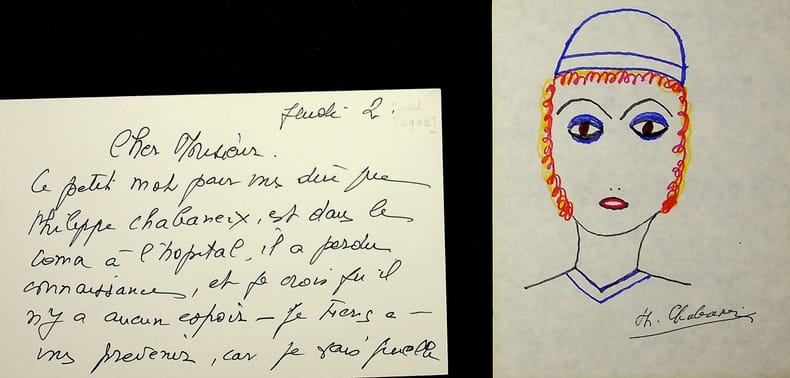 Jeudi 2.
[avril 1982]
Cher Monsieur.
Ce petit mot pour vous dire que
Philippe Chabaneix, est dans le
coma à l'hopital, il a perdu
connaissance, et je crois qu'il
n'y a aucun espoir – Je tiens a –
vous prevenir, car je sais quelle
Ph. Chabaneix